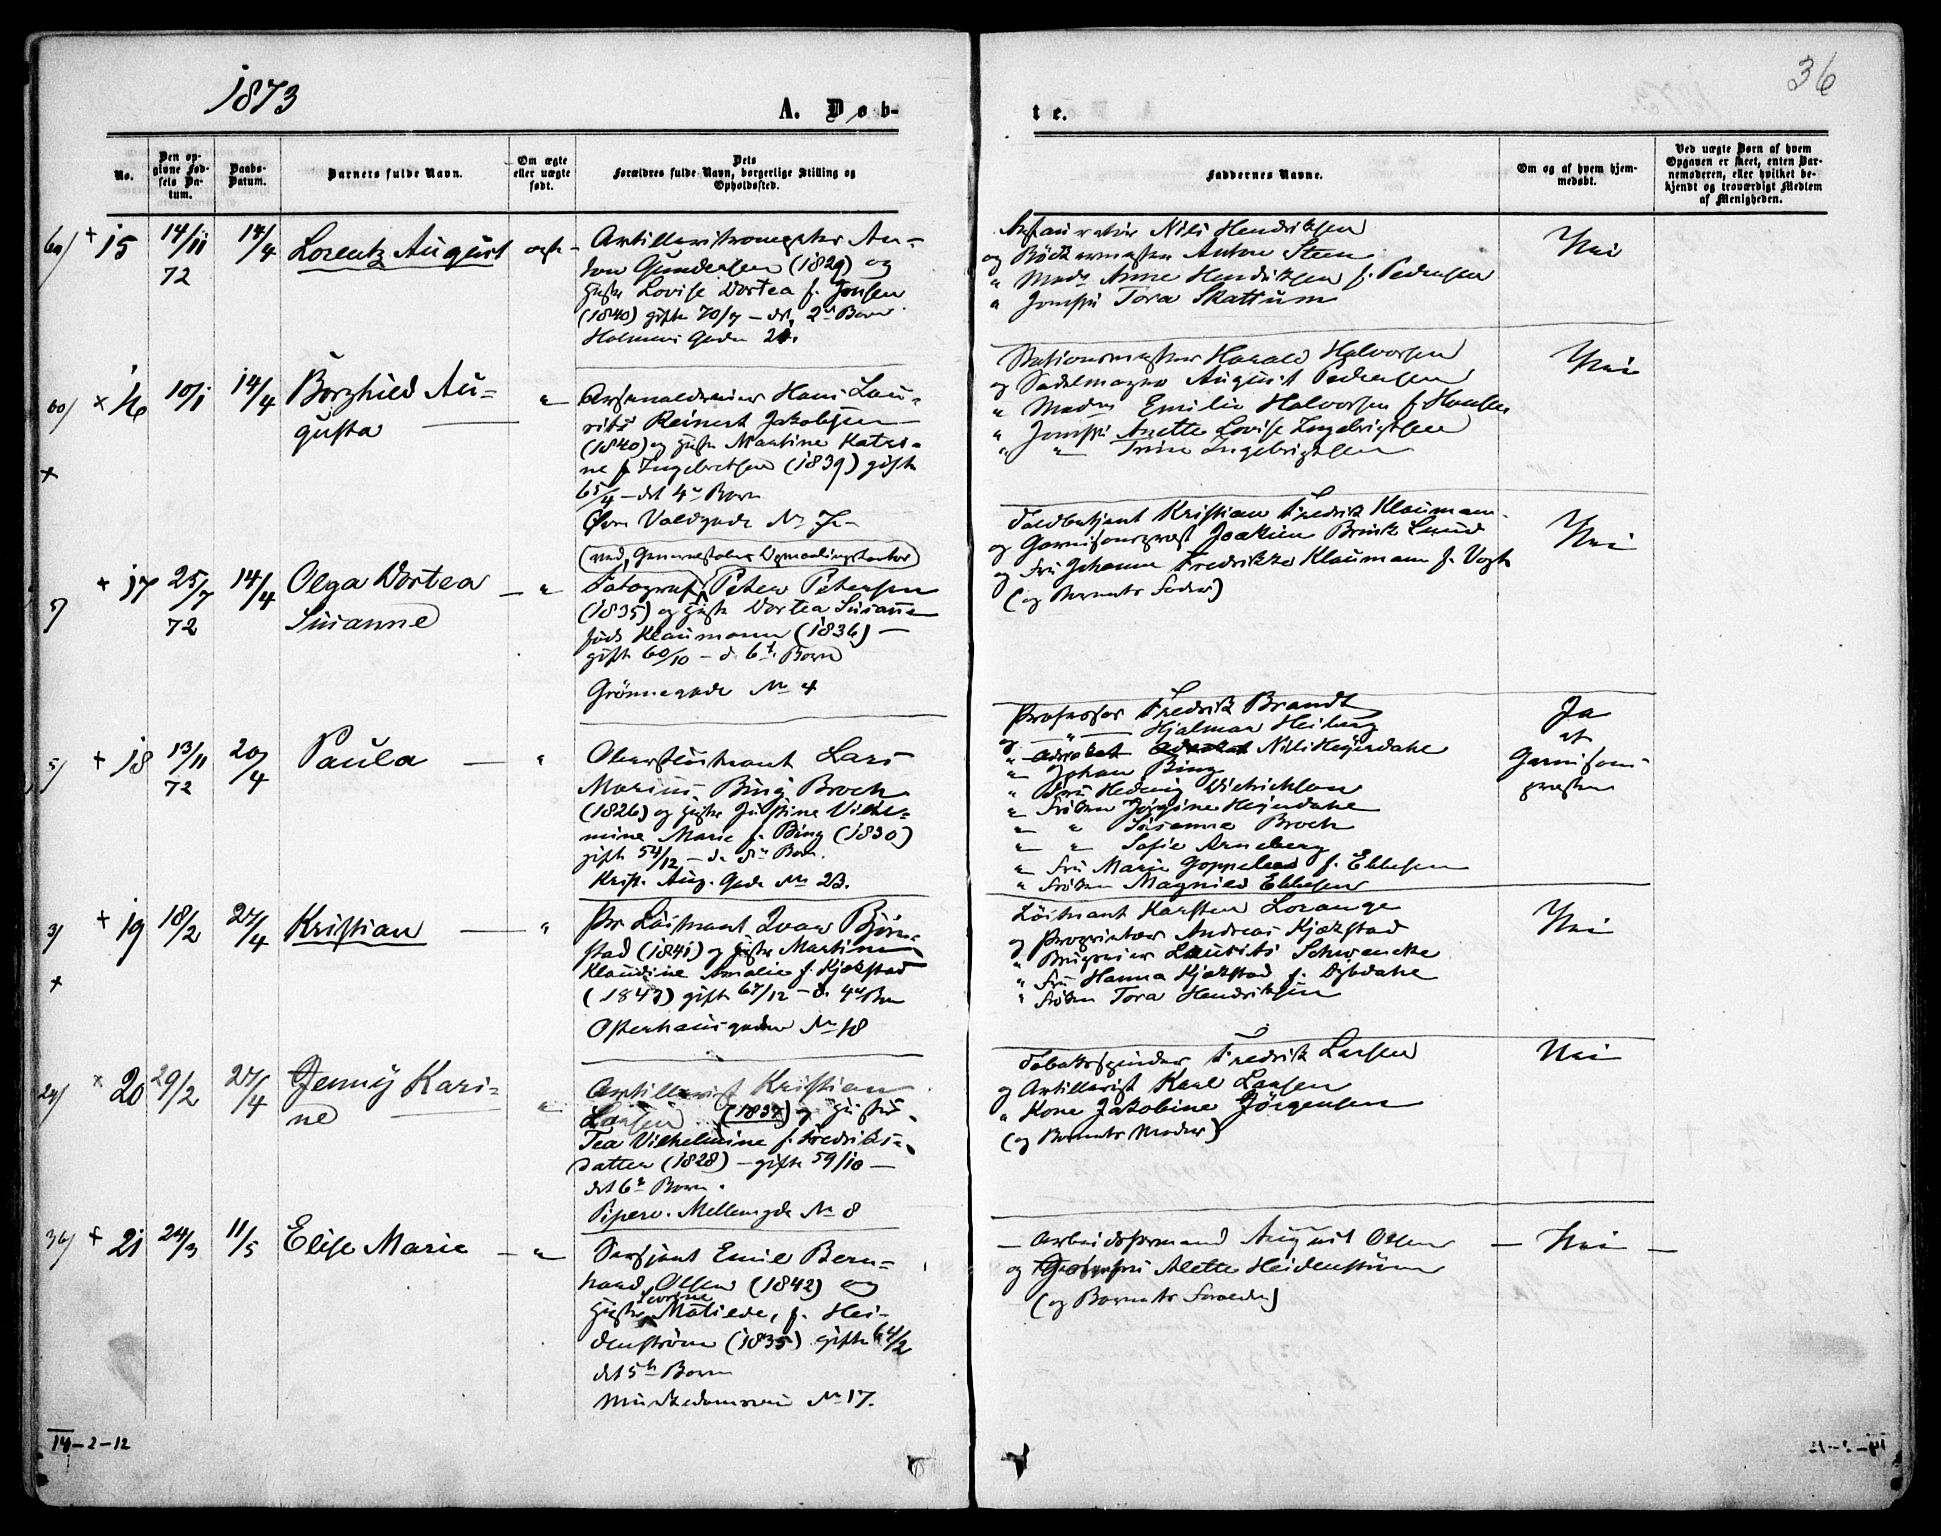 1873
36
A. Døb-
te.
No.
Den op-
givne Fød-
sels Da-
tum.
Daabs-
Datum.
Barnets fulde Navn.
Om ægte
eller uægte
født.
Dets
Forældres fulde Navn, borgerlige Stilling og
Opholdssted.
Faddernes Navne.
Om og af hvem hjem-
medøbt.
Ved uægte Børn af hvem
Opgaven er skeet, enten Bar-
nemoderen, eller hvilket be-
kjendt og troværdigt Medlem
af Menigheden.
+ 15 14/11 72 14/4 Lorentz August ægte
An-
ton Gundersen (1829) og
Hustr Lovise Dortea f. Jonsen
(1840) gifte 70/7 – det 2t Barn
Holmens Gade
Nils Hendriksen
og Bødkermester Anton Steen
" Mad. Anne Hendriksen f. Pedersen
" Jomfru Tora Skattum
Nei
60) × 16 10/1 14/4 Borghild Au-
gusta "
Hans Lau-
rits Reinert Jakobsen
(1840) og Hustr Martine Katri-
ne f. Ingebretsen (1839) gifte
65/4 – det 4de Barn
Øvre Voldgade No 7
Stationsmester Harald Halvorsen
og Sadelmager August Pedersen
" Madm Emilie Halvorsen f. Hansen
" Jomfru Anette Lovise Ingebrigtsen
" " Trine Ingebrigtsen
Nei
+
5) + 17 25/7 72 14/4 Olga Dortea
Susanne "
(ved Generalstabens Opmaalingskontor)
Fotograf Peter Petersen
(1835) og Hustr Dortea Susanne
født Klaumann (1836) –
gift 60/10 – d. 6t. Barn
Grönnegade No 4
Toldbetjent Kristian Fredrik Klaumann
og Garnisonsprest Joakim Brink Lund
og Fru Johanne Fredrikke Klaumann f. Vogt
(og Barnets Fader)
Nei
5) + 18 13/11 72 20/4 Paula "
Oberstløitnant Lars
Marius Bing Broch
(1826) og Hustr Justine Vilhel-
mine Marie f. Bing (1830)
gift 54/12 – d. Barn.
Krist. Aug. Gade No 23.
Professor Fredrik Brandt
og " Hjalmar Heiberg
" Advokat Nils Heyerdahl
" Johan Bing
" Fru Hedvig Dietrichson
" Frøken Jørgine Heyerdahl
" " Susanne Broch
" " Sofie Arneberg
" Fru Marie f. Ebbesen
" Frøken Magnild Ebbesen
Ja
af
Garnisons-
presten
3) + 19 18/2 27/4 Kristian "
Pr Løitnant Ivar Bjørn-
stad (1841) og Hustr Martine
Klaudine Amalie f. Kjækstad
(1843) gift 67/12 – d. 4de Barn
Osterhausgaden No 18
Löitnant Karsten Lorange
og Proprietær Andreas Kjækstad
" Brugseier Laurits Schwencke
" Fru Hanna Kjækstad f. Dybdahl
" Frøken Tora Hendriksen
Nei
+
24) × 20 29/2 27/4 Jenny Kari-
ne "
Artillerist Kristian
Larsen (1837) og Hustru
Tea Vilhelmine f. Fredriks-
datter (1828) – gifte 59/10 –
det 6te Barn.
Piperv. Mellemgde No 8
Tobakspinder Fredrik Larsen
og Artillerist Karl Larsen
" Kone Jakobine Jörgensen
(og Barnets Moder)
Nei
36) + 21 24/3 11/5 Elise Marie – "
Sersjant Emil Bern-
hard Olsen (1842) og
Hustr Severine Matilde, f. Hei-
denstrøm (1835) gifte 64/2
det 5te Barn
Munkedamsveien No 17.
– Arbeidsformand August Olsen –
og Alette Heidenstrøm
(og Barnets Forældre)
Nei –
14–2–12